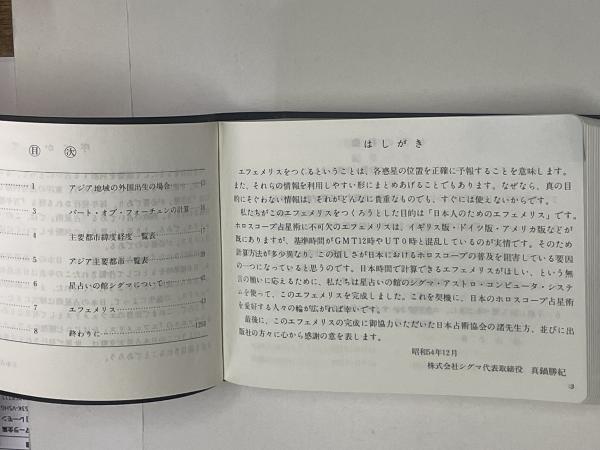 目次
1 アジア地域の外国出生の場合
3 パート・オブ・フォーチェンの計算
4 主要都市緯度経度一覧表
5 アジア主要都市一覧表
6 星占いの館シグマについて
7 エフェメリス
8 終わりに
はしがき
エフェメリスをつくるということは、各惑星の位置を正確に予報することを意味します。
また、それらの情報を利用しやすい形にまとめあげることでもあります。なぜなら、真の目
的にそぐわない情報は、それがどんなに貴重なものでも、すぐには使えないからです。
私たちがこのエフェメリスをつくろうとした目的は「日本人のためのエフェメリス」です。
ホロスコープ占星術に不可欠のエフェメリスは、イギリス版・ドイツ版・アメリカ版などが
既にありますが、基準時間がGMT12時やUT0時と混乱しているのが実情です。そのため
計算方法が多少異なり、この煩しさが日本におけるホロスコープの普及を阻害している要因
の一つになっていると思うのです。日本時間で計算できるエフェメリスがほしい、という無
言の願いに応えるために、私たちは星占いの館のシグマ・アストロ・コンピュータ・システ
ムを使って、このエフェメリスを完成しました。これを契機に、日本のホロスコープ占星術
を愛好する人々の輪が広がれば幸いです。
最後に、このエフェメリスの完成に御協力いただいた日本占術協会の諸先生方、並びに出
版社の方々に心から感謝の意を表します。
昭和54年12月
株式会社シグマ代表取締役 真鍋勝紀